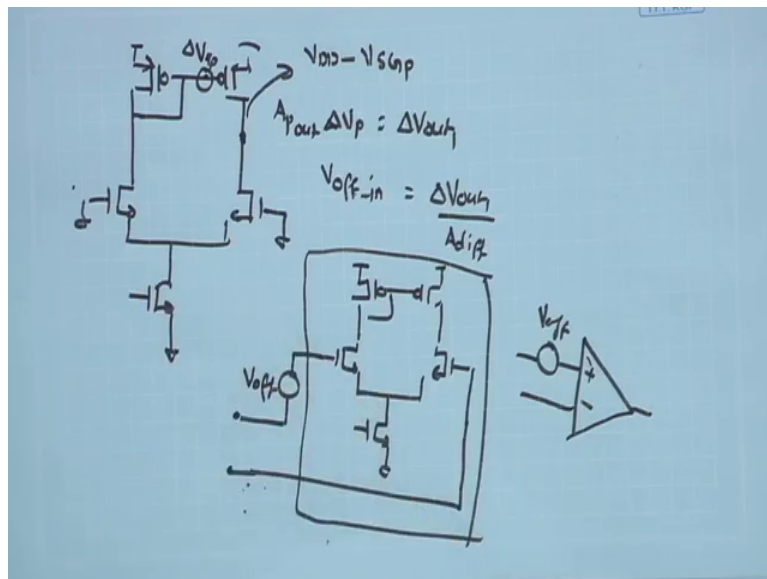 ΔVTp
VDD - VSGp
Apout ΔVp = ΔVout
Voff-in = ΔVout
Adiff
Voff
Voff
+
-